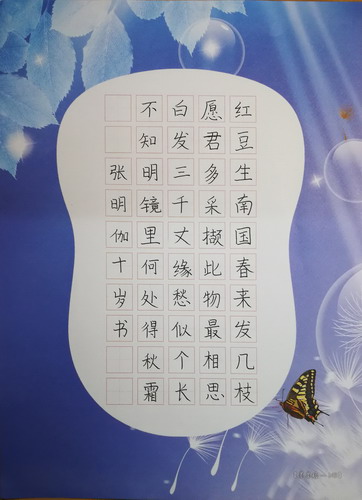 红豆生南国春来发几枝
愿君多采撷此物最相思
白发三千丈缘愁似个长
不知明镜里何处得秋霜
张明伽十岁书